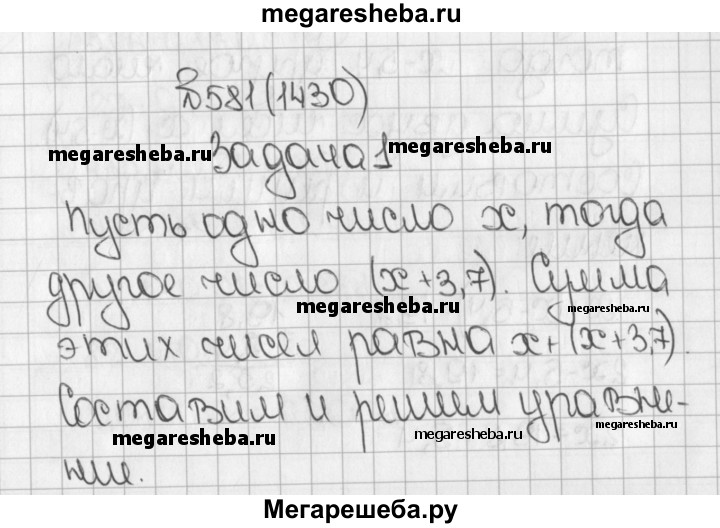 megaresheba.ru
№581(1430)
megaresheba.ru Задача 1 megaresheba.ru
Пусть одно число x, тогда
другое число (x+3,7). Сумма
megaresheba.ru megaresheba.ru
этих чисел равна x+(x+3,7).
Составим и решим уравне-
megaresheba.ru megaresheba.ru megaresheba.ru
ние.
Мегарешеба.ру